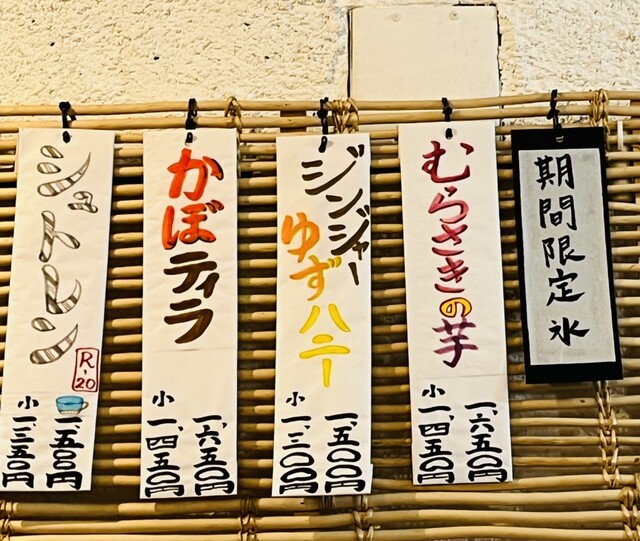 期間限定氷
むらさきの芋
一、六五〇円
小一、四五〇円
ジンジャー
ゆずハニー
一、五〇〇円
小一、三〇〇円
かぼ
ティラ
一、六五〇円
小一、四五〇円
シュトレン
R-20
一、五五〇円
小一、三五〇円